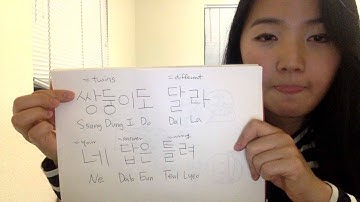 = twins = different
쌍둥이도 달라
Ssang Dung I Do Dal La
= your = answer = wrong
네 답은 틀려
Ne Dab Eun Teul Lyeo